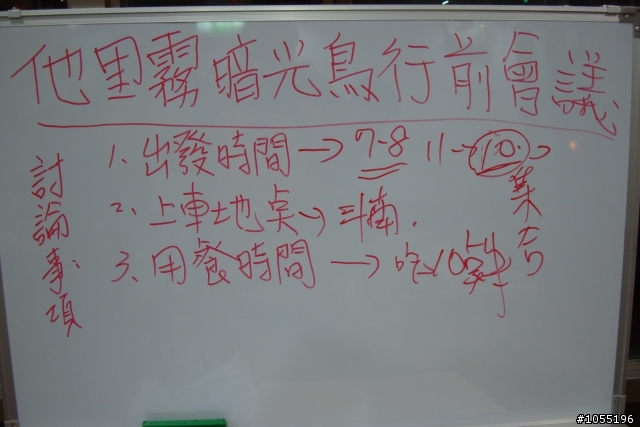 他里霧暗光鳥行前會議
討論事項
1、出發時間→7-8 11→10.
2、上車地点→斗南.
3、用餐時間→吃
#1055196